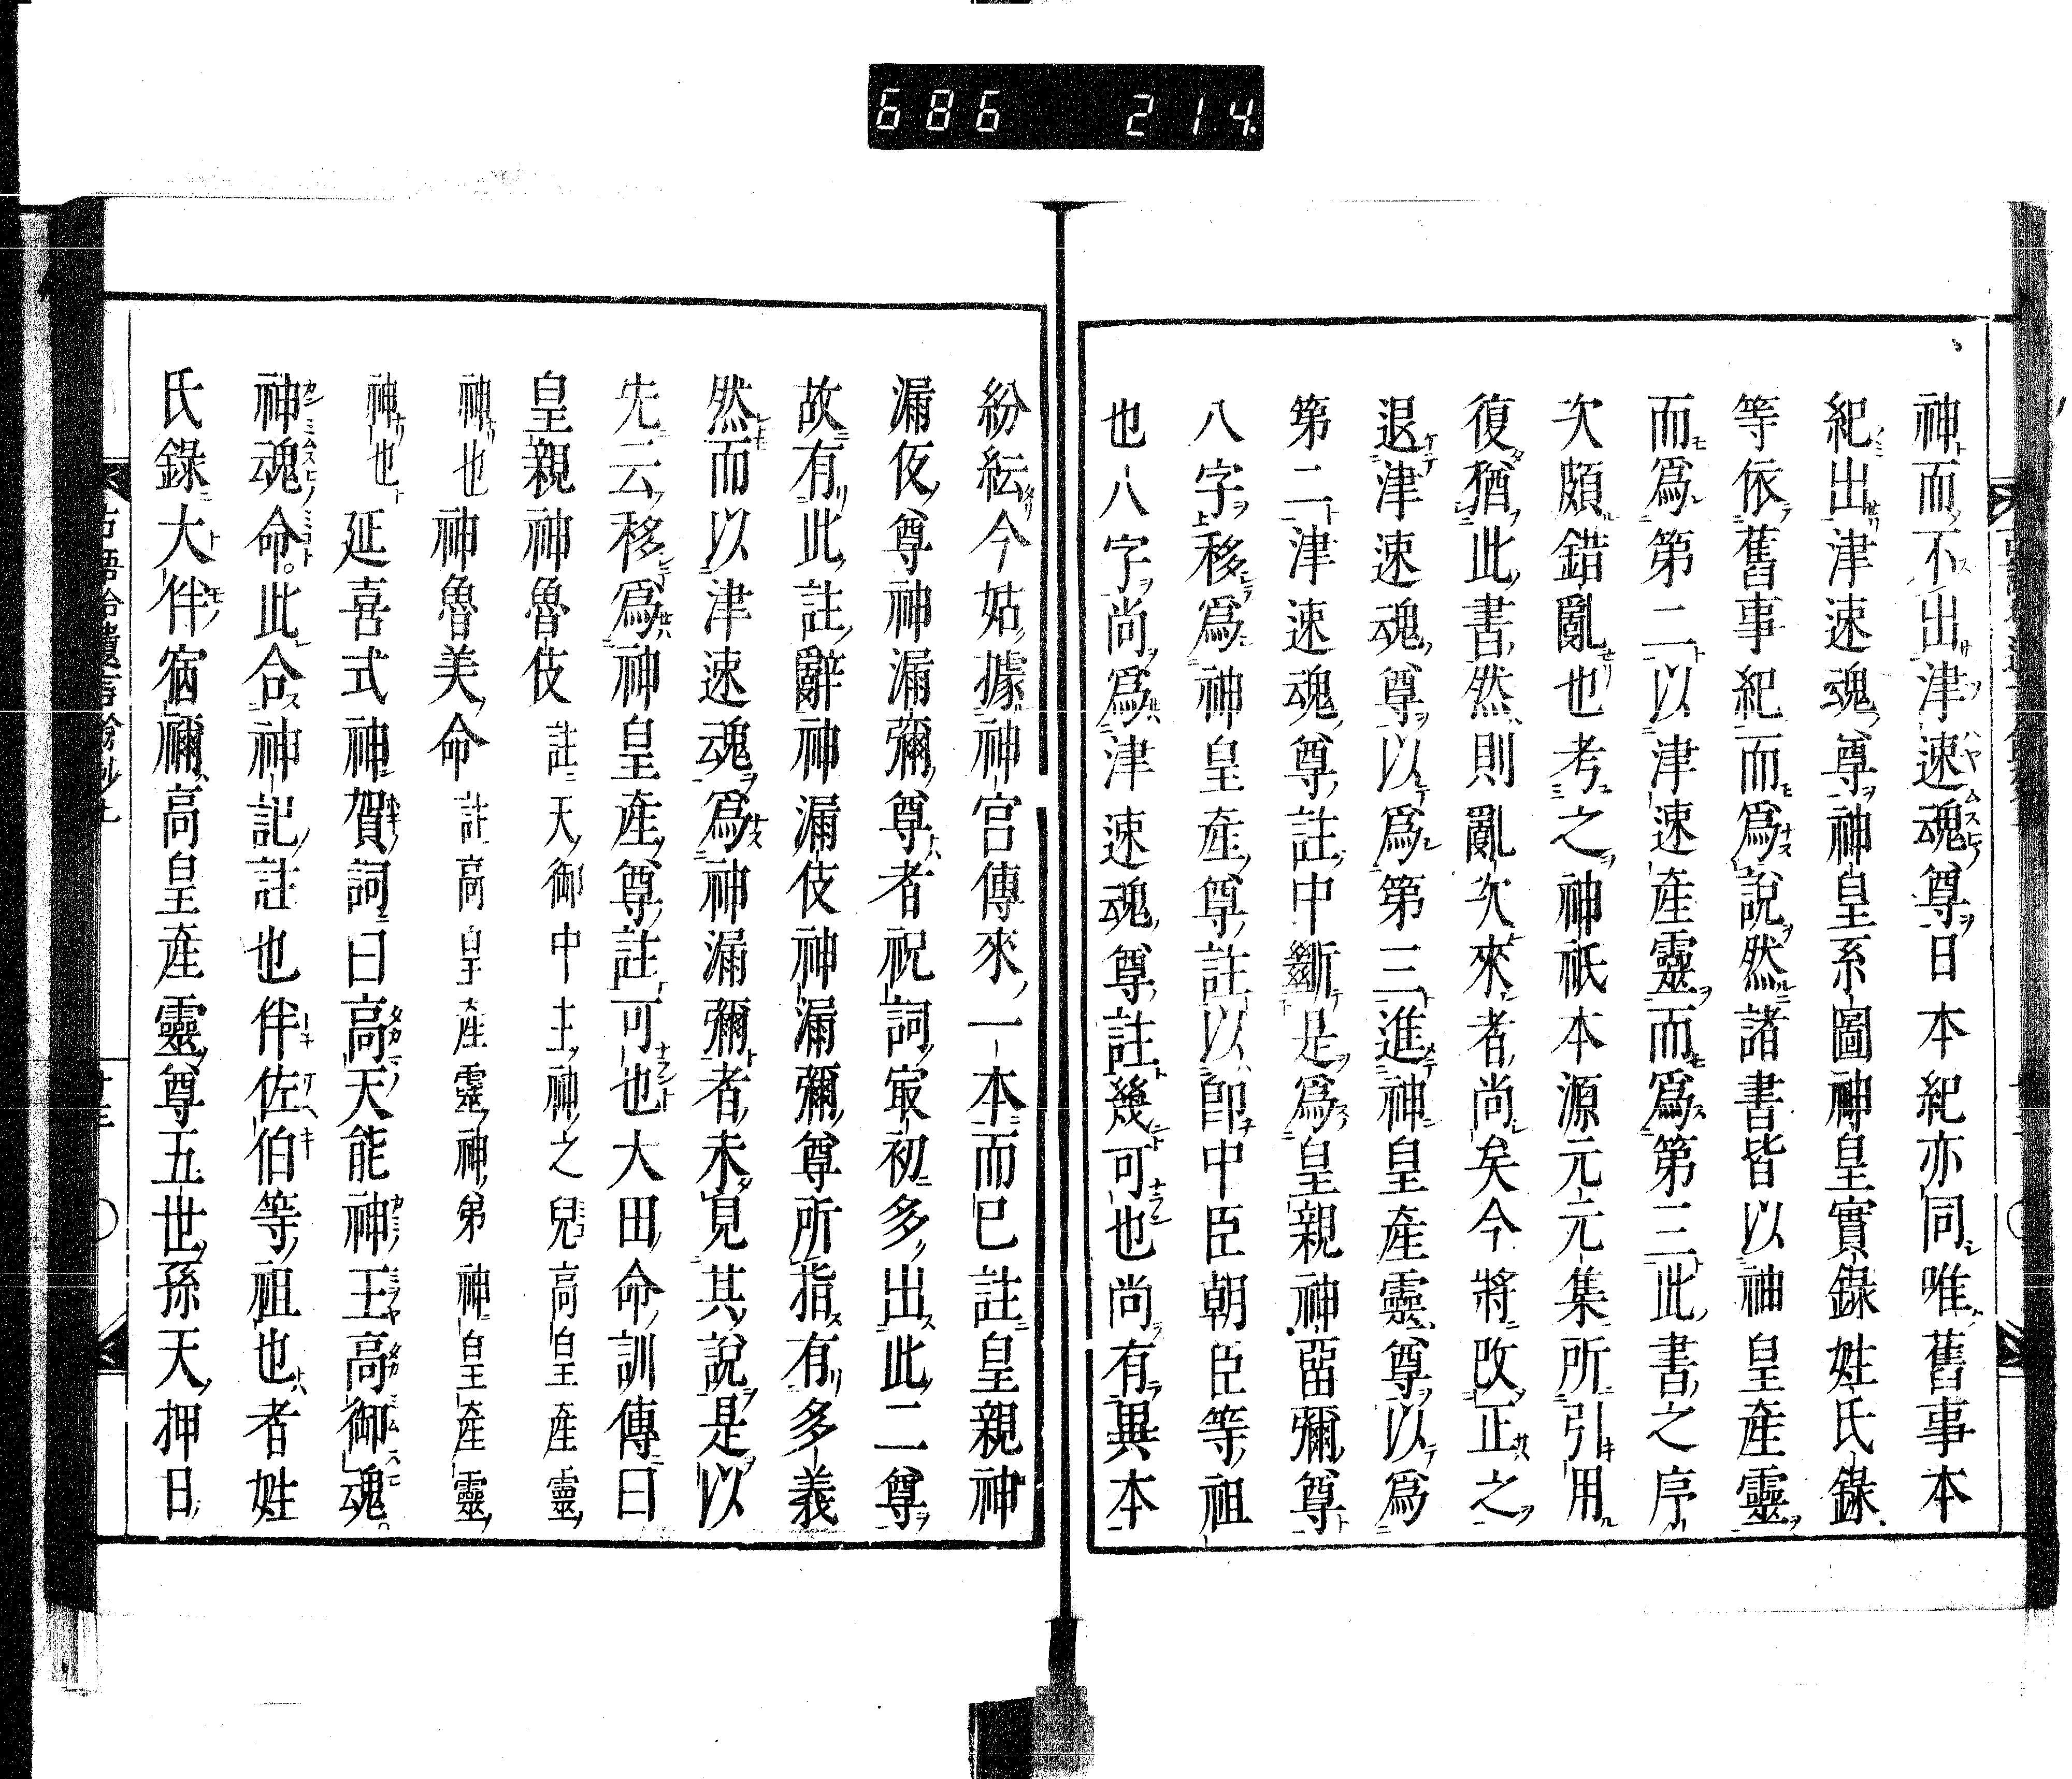 686 214
神而不出津速魂尊日本紀亦同唯舊事本
紀出津速魂尊神皇系圖神皇實錄姓氏錄
等依舊事紀而爲說然諸書皆以神皇産靈
而爲第二以津速産靈而爲第三此書之序
次頗錯亂也考之神祇本源元元集所引用
復猶此書然則亂次來者尚矣今將改正之
退津速魂尊以爲第三進神皇産靈尊以爲
第二津速魂尊註中斷是爲皇親神留彌尊
八字移爲神皇産尊註以即中臣朝臣等祖
也八字尚爲津速魂尊註幾可也尚有異本
紛紜今姑據神宮傳來一本而已註皇親神
漏伎尊神漏彌尊者祝詞冣初多出此二尊
故有此註辭神漏伎神漏彌尊所指有多義
然而以津速魂爲神漏彌者未見其說是以
先云移爲神皇産尊註可也大田命訓傳曰
皇親神魯伎註天御中主神之兒高皇産靈
神也神魯美命註高皇産靈神弟神皇産靈
神也延喜式神賀詞曰高天能神王高御魂
神魂命此合神記註也伴佐伯等祖也者姓
氏錄大伴宿禰高皇産靈尊五世孫天押日